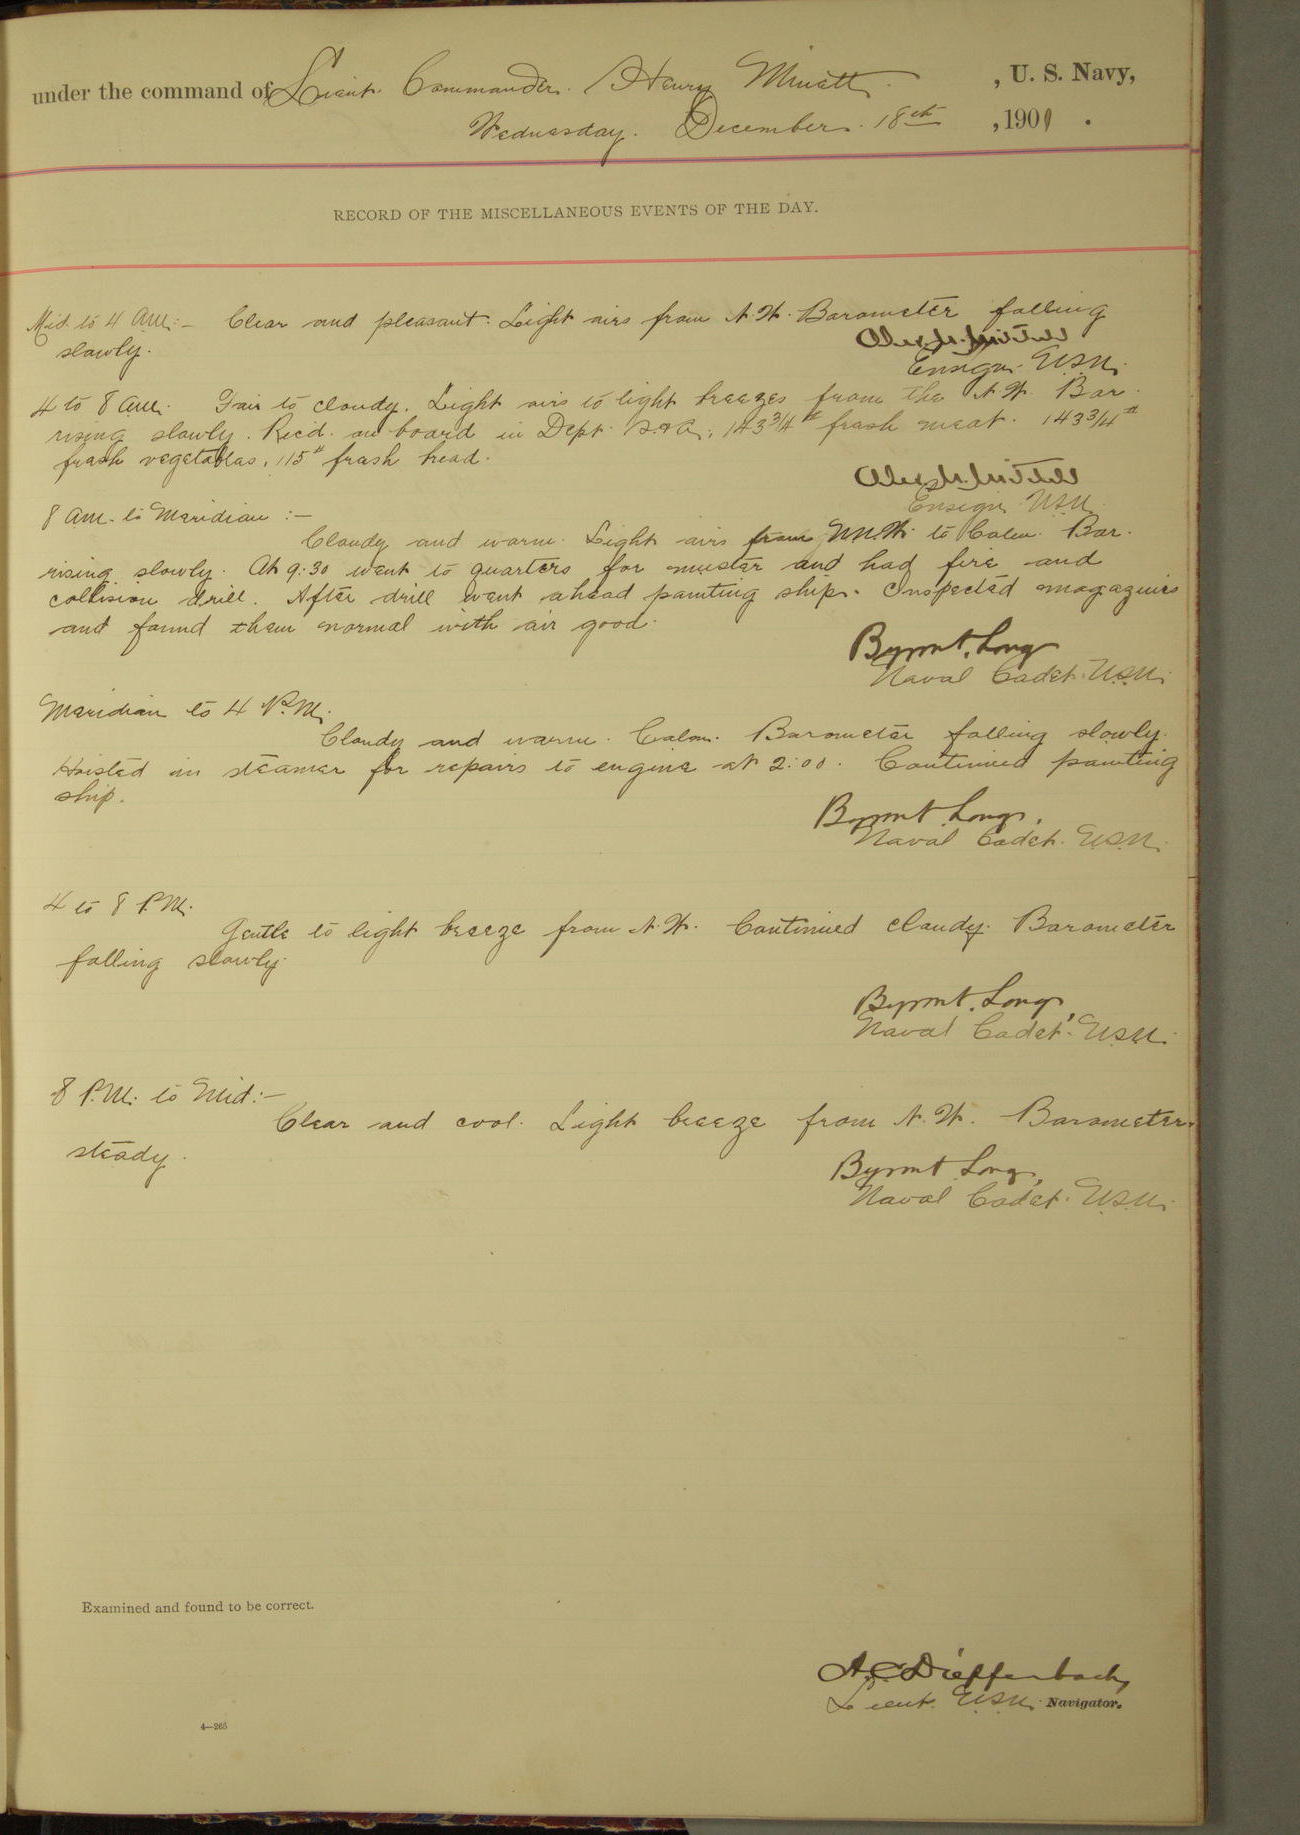 under the command of Lieut. Commander. Henry Minett. , U. S. Navy,
Wednesday. December. 18th , 1901 .
RECORD OF THE MISCELLANEOUS EVENTS OF THE DAY.
Mid. to 4 A.M.:- Clear and pleasant. Light airs from N.W. Barometer falling
slowly.
Ensign. U.S.N.
4 to 8 A.M. Fair to cloudy. Light airs to light breezes from the N.W. Bar.
rising slowly. Rec'd. on board in Dept. S.&A., 143 3/4 # fresh meat. 143 3/4 #
fresh vegetables, 115 # fresh bread.
Ensign U.S.N.
8 A.M. to Meridian :-
Cloudy and warm. Light airs from N.N.W. to Calm. Bar.
rising slowly. At 9:30 went to quarters for muster and had fire and
collision drill. After drill went ahead painting ship. Inspected magazines
and found them normal with air good.
Byron A. Long
Naval Cadet. U.S.N.
Meridian to 4 P.M.
Cloudy and warm. Calm. Barometer falling slowly.
Hoisted in steamer for repairs to engine at 2:00. Continued painting
ship.
Byron A. Long.
Naval Cadet. U.S.N.
4 to 8 P.M.
Gentle to light breeze from N.W. Continued cloudy. Barometer
falling slowly.
Byron A. Long
Naval Cadet. U.S.N.
8 P.M. to Mid:-
Clear and cool. Light breeze from N.W. Barometer
steady.
Byron A. Long,
Naval Cadet. U.S.N.
Examined and found to be correct.
A.C. Dieffenbach,
Lieut. U.S.N. Navigator.
4—265